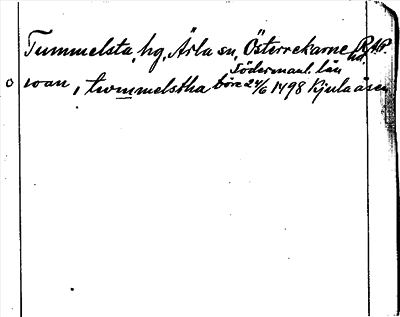 Tummelsta, hg, Ärla sn, Österrekarne hd, RAP.
Södermanl. län
o wan, twmmelstha före 24/6 1498 Kjulaåsen